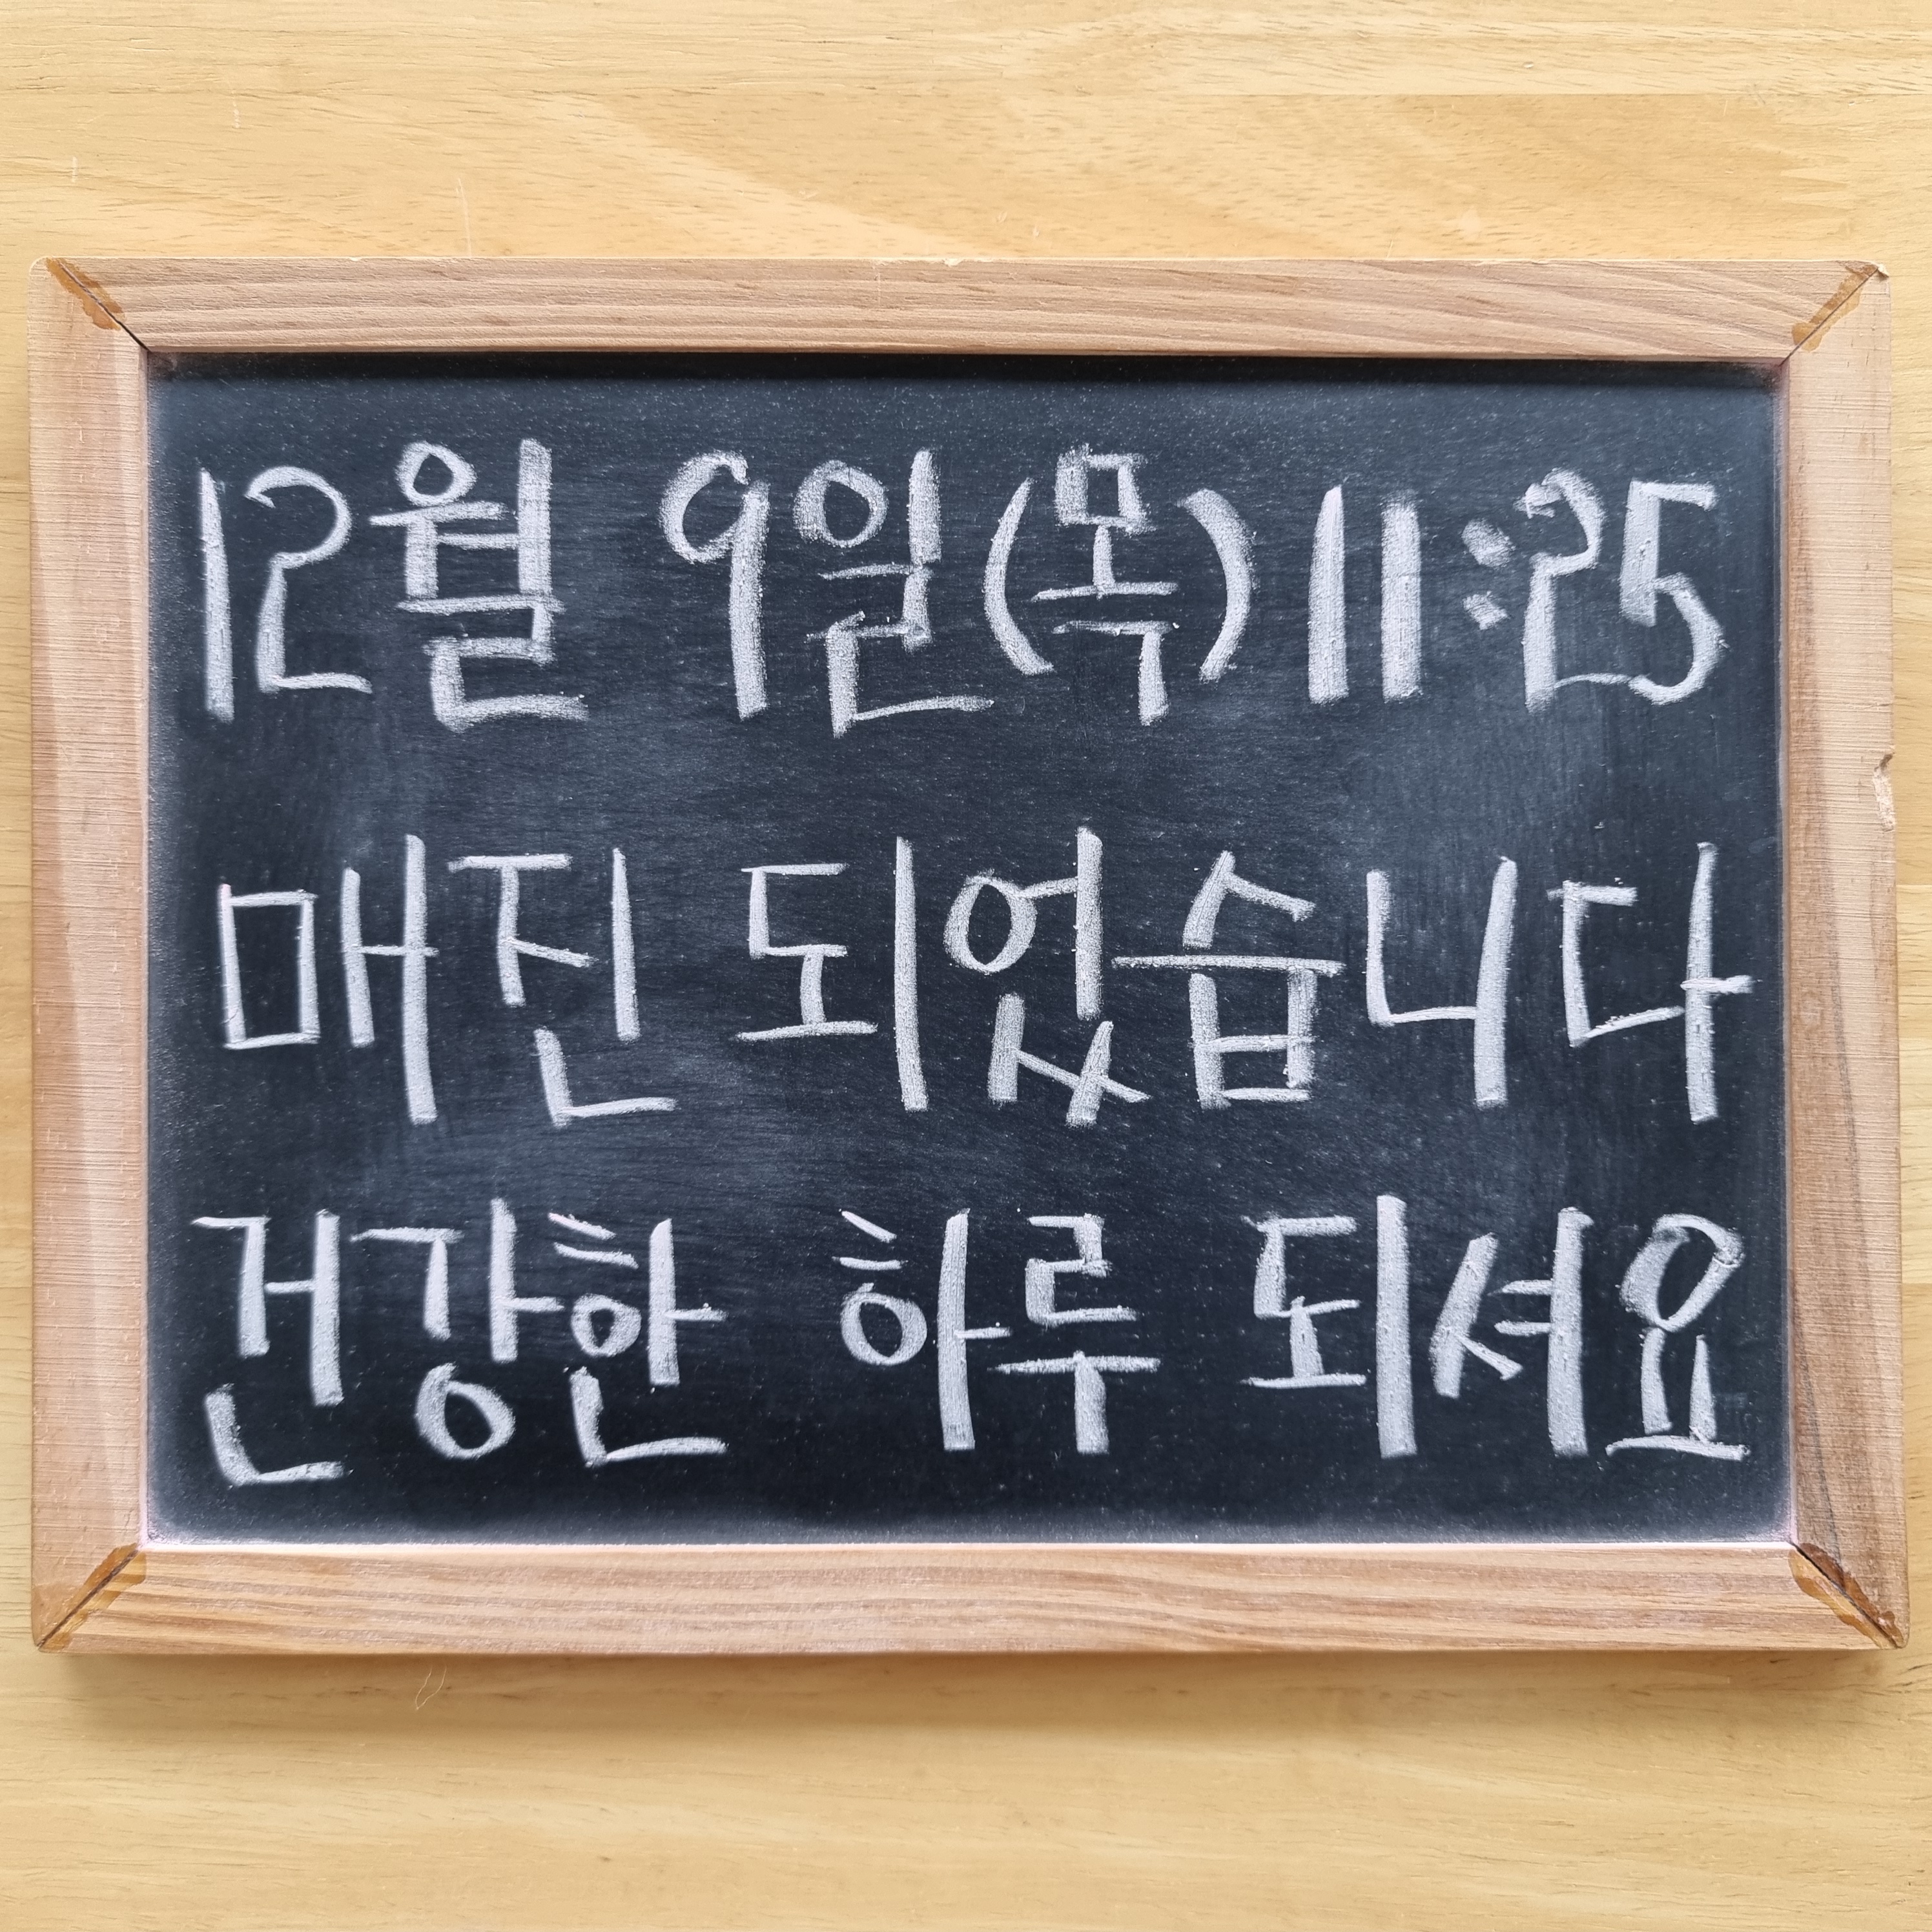 12월 9일(목) 11:25
매진 되었습니다
건강한 하루 되셔요